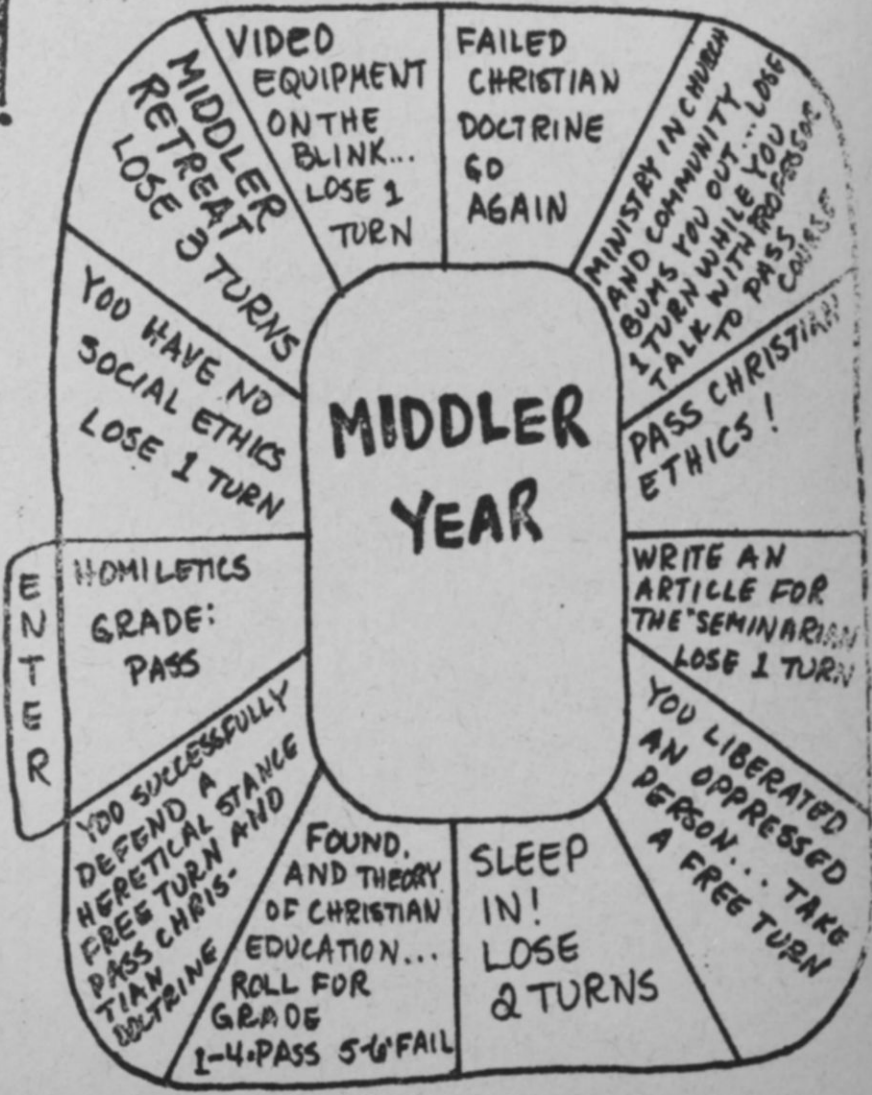 MIDDLER
YEAR
ENTER
HOMILETICS
GRADE:
PASS
YOU HAVE NO
SOCIAL ETHICS
LOSE 1 TURN
MIDDLER
RETREAT
LOSE 3 TURNS
VIDEO
EQUIPMENT
ON THE
BLINK...
LOSE 1
TURN
FAILED
CHRISTIAN
DOCTRINE
GO
AGAIN
MINISTRY IN CHURCH
AND COMMUNITY
BUMS YOU OUT... LOSE
1 TURN WHILE YOU
TALK WITH PROFESSOR
TO PASS
COURSE
PASS CHRISTIAN
ETHICS!
WRITE AN
ARTICLE FOR
THE "SEMINARIAN
LOSE 1 TURN
YOU LIBERATED
AN OPPRESSED
PERSON... TAKE
A FREE TURN
SLEEP
IN!
LOSE
2 TURNS
FOUND.
AND THEORY
OF CHRISTIAN
EDUCATION...
ROLL FOR
GRADE
1-4·PASS 5-6·FAIL
YOU SUCCESSFULLY
DEFEND A
HERETICAL STANCE
FREE TURN AND
PASS CHRIS-
TIAN
DOCTRINE